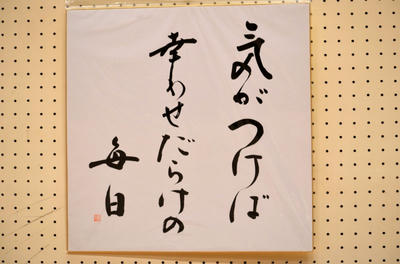 気がつけば
幸わせだらけの
毎日